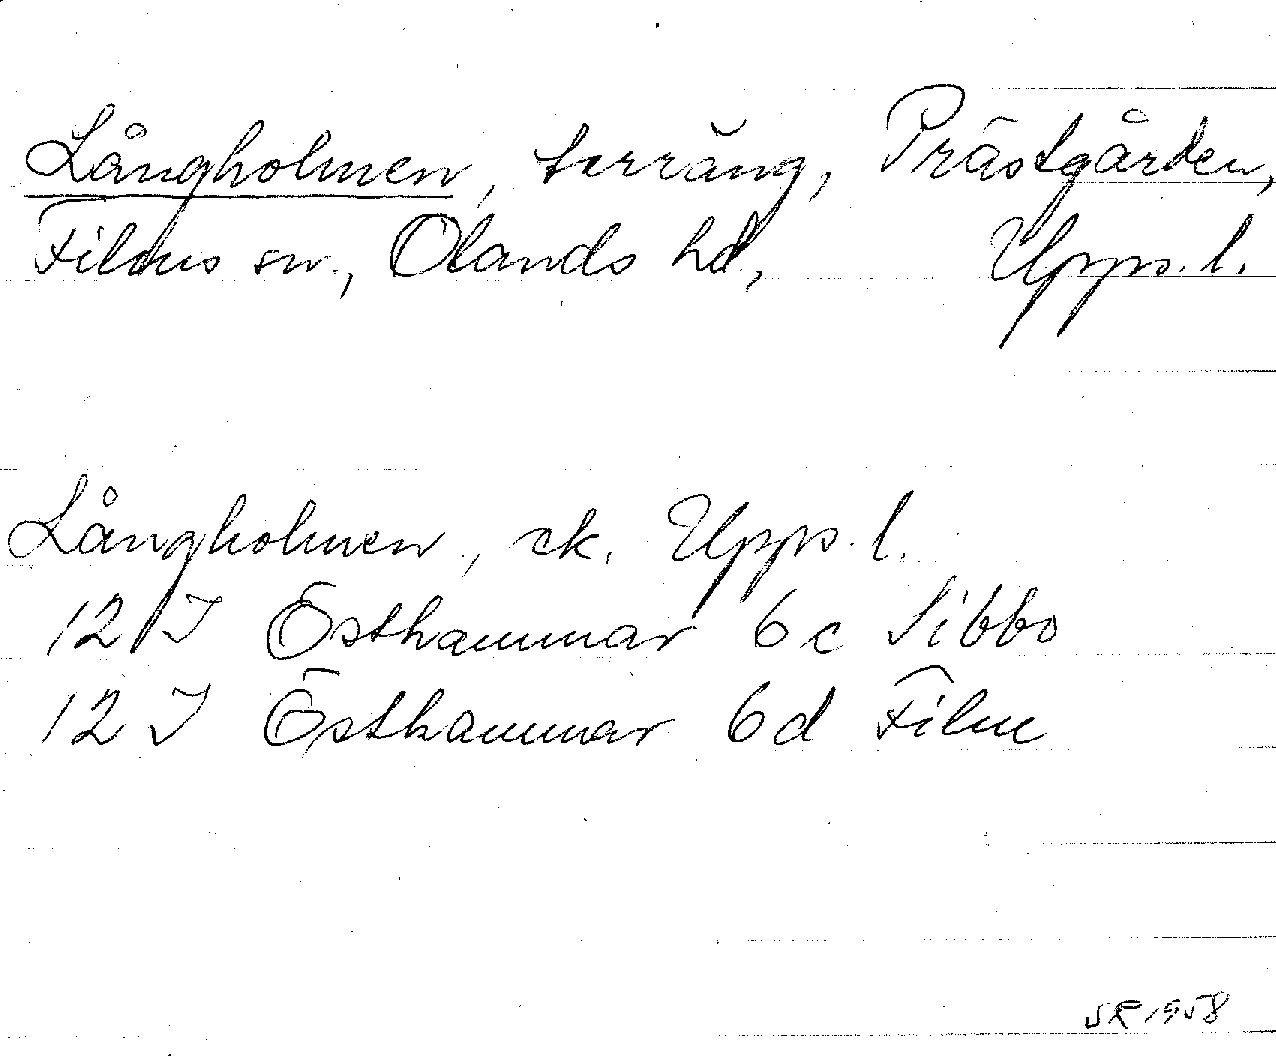 Långholmen, terräng, Prästgården,
Films sn., Olands hd, Upps. l.
Långholmen, ek. Upps. l.
12 I Östhammar 6 c Sibbo
12 I Östhammar 6 d Film
SR 1958